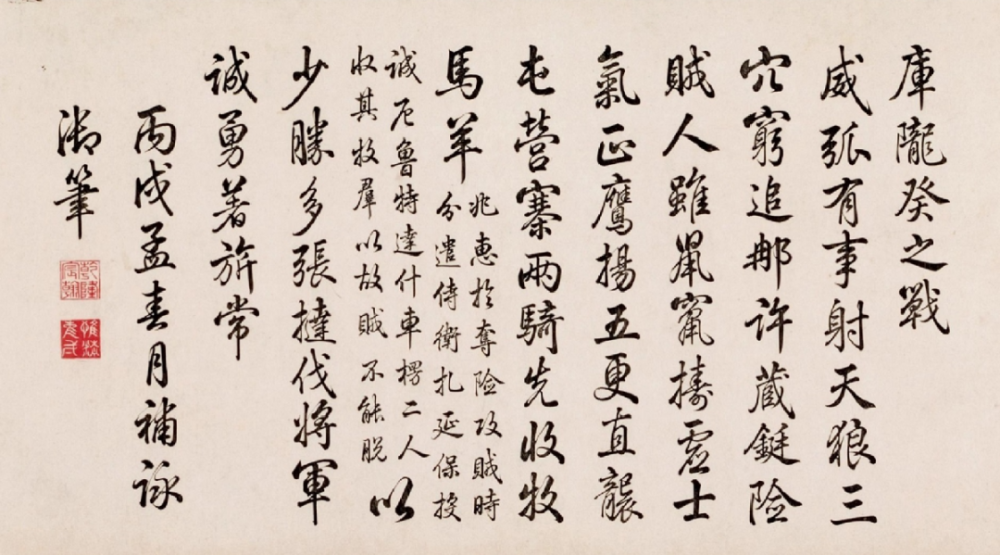 庫隴癸之戰
威弧有事射天狼三
穴窮追那許藏鋌險
賊人雖鼠竄擣虛士
氣正鷹揚五更直襲
屯營寨兩騎先收牧
馬羊
兆惠於奪險攻賊時
分遣侍衛扎延保投
誠厄魯特達什車楞二人
收其牧羣以故賊不能脫
以
少勝多張撻伐將軍
誠勇著旂常
丙戌孟春月補詠
御筆
乾隆宸翰